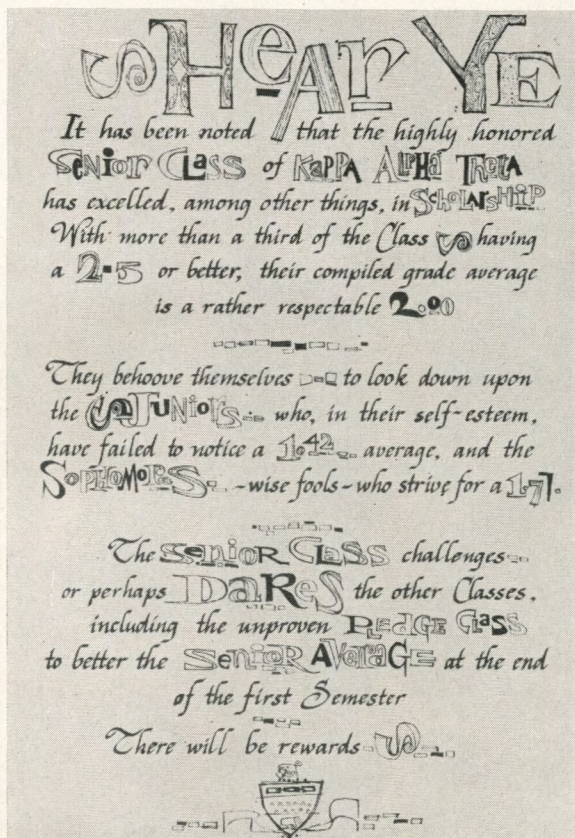 HeAr YE
It has been noted that the highly honored
SENIOR CLASS of KAPPA ALPHA THETA
has excelled, among other things, in SCHOLARSHIP
With more than a third of the Class having
a 2.5 or better, their compiled grade average
is a rather respectable 2.00
They behoove themselves to look down upon
the JUNIORS who, in their self-esteem,
have failed to notice a 1.42 average, and the
SOPHOMORES - wise fools - who strive for a 1.71.
The SENIOR CLASS challenges
or perhaps DARES the other Classes,
including the unproven PLEDGE CLASS
to better the SENIOR AVERAGE at the end
of the first Semester
There will be rewards